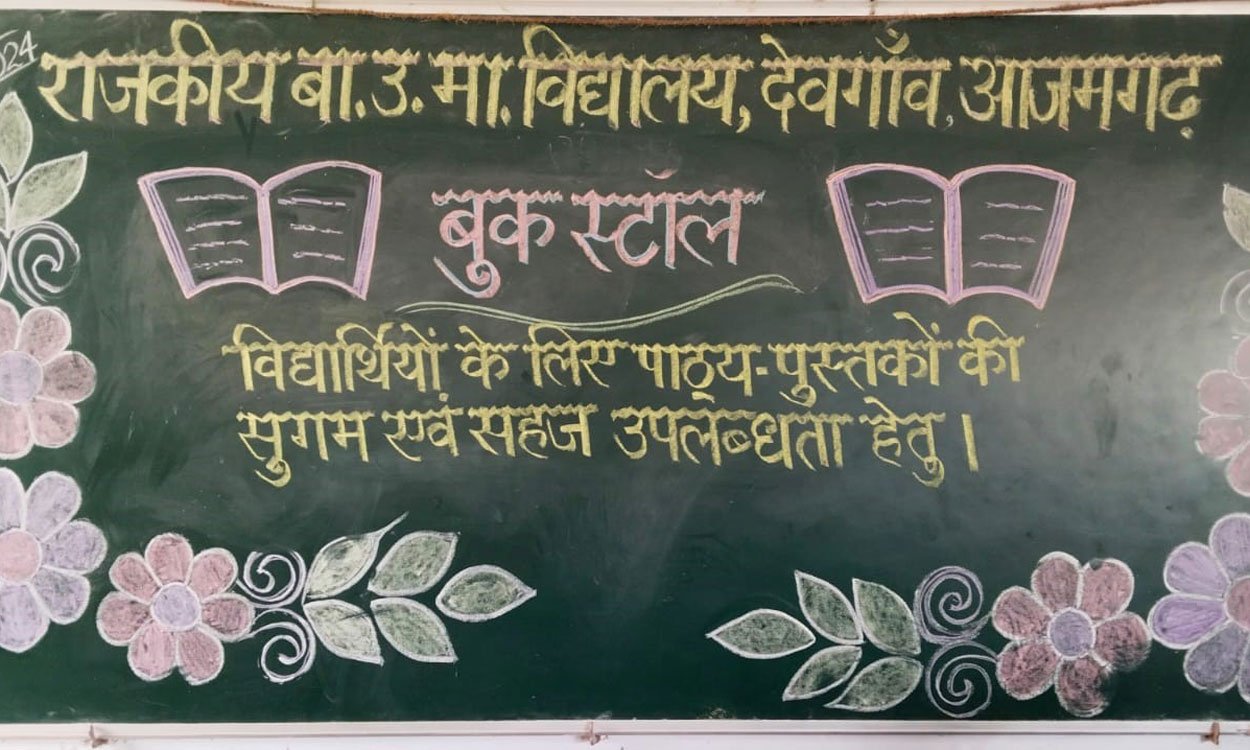 राजकीय बा. उ. मा. विद्यालय, देवगाँव, आजमगढ़
बुक स्टॉल
विद्यार्थियों के लिए पाठ्य-पुस्तकों की
सुगम एवं सहज उपलब्धता हेतु।